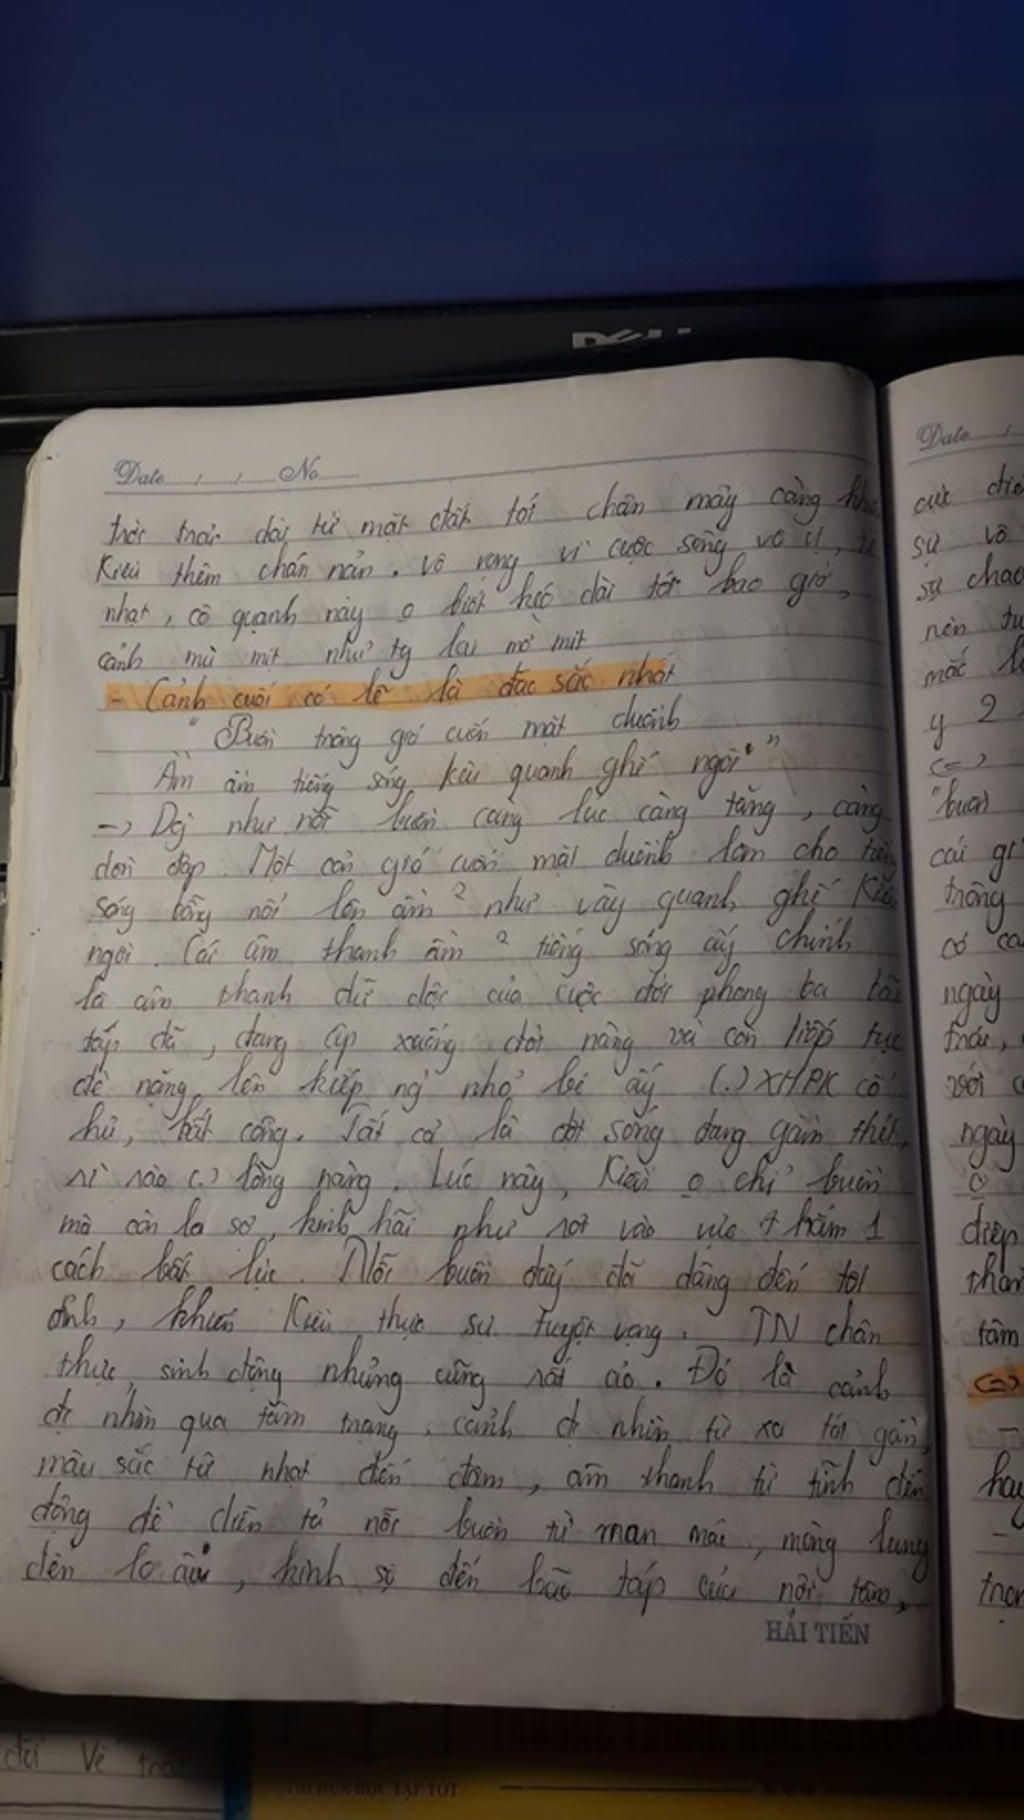 DELL
Date...../...../..... No.....
trời trải dài từ mặt đất tới chân mây càng khiến
Kiều thêm chán nản, vô vọng vì cuộc sống vô vị, tẻ
nhạt, cô quạnh này o biết kéo dài tới bao giờ,
cảnh mù mịt như tg lai mờ mịt
- Cảnh cuối có lẽ là đặc sắc nhất
"Buồn trông gió cuốn mặt duềnh
Ầm ầm tiếng sóng kêu quanh ghế ngồi"
-> Dg như nỗi buồn càng lúc càng tăng, càng
dồn dập. Một cơn gió cuốn mặt duềnh làm cho tiếng
sóng bỗng nổi lên ầm ² như vây quanh ghế Kiều
ngồi. Cái âm thanh ầm ² tiếng sóng ấy chính
là âm thanh dữ dội của cuộc đời phong ba bão
táp đã, đang ập xuống đời nàng và còn tiếp tục
đè nặng lên kiếp ng nhỏ bé ấy (.) XHPK cổ
hủ, bất công. Tất cả là đợt sóng đang gầm thét,
rì rào (.) lòng nàng. Lúc này, Kiều o chỉ buồn
mà còn lo sợ, kinh hãi như rơi vào vực thẳm 1
cách bất lực. Nỗi buồn dấy đã dâng đến tột
đỉnh, khiến Kiều thực sự tuyệt vọng. TN chân
thực, sinh động nhưng cũng rất ảo. Đó là cảnh
đc nhìn qua tâm trạng, cảnh đc nhìn từ xa tới gần,
màu sắc từ nhạt đến đậm, âm thanh từ tĩnh đến
động để diễn tả nỗi buồn từ man mác, mông lung
đến lo âu, kinh sợ đến bão táp của nội tâm,
HẢI TIẾN
Date...../
sự vô
nên
mắc
y 2
(=)
"buồn
cái
trông
có
ngày
với
ngày
điệp
tâm
(=)
hay
đối Vẽ